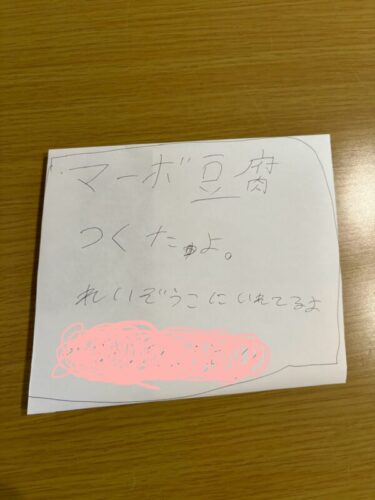 マーボ豆腐
つくたよ。
れいぞうこにいれてるよ